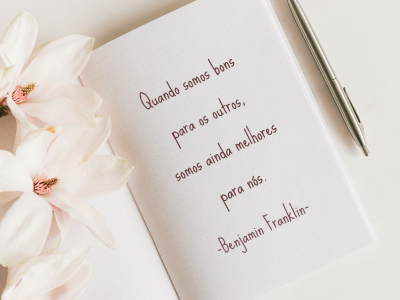 Quando somos bons
para os outros,
somos ainda melhores
para nós.
-Benjamin Franklin-